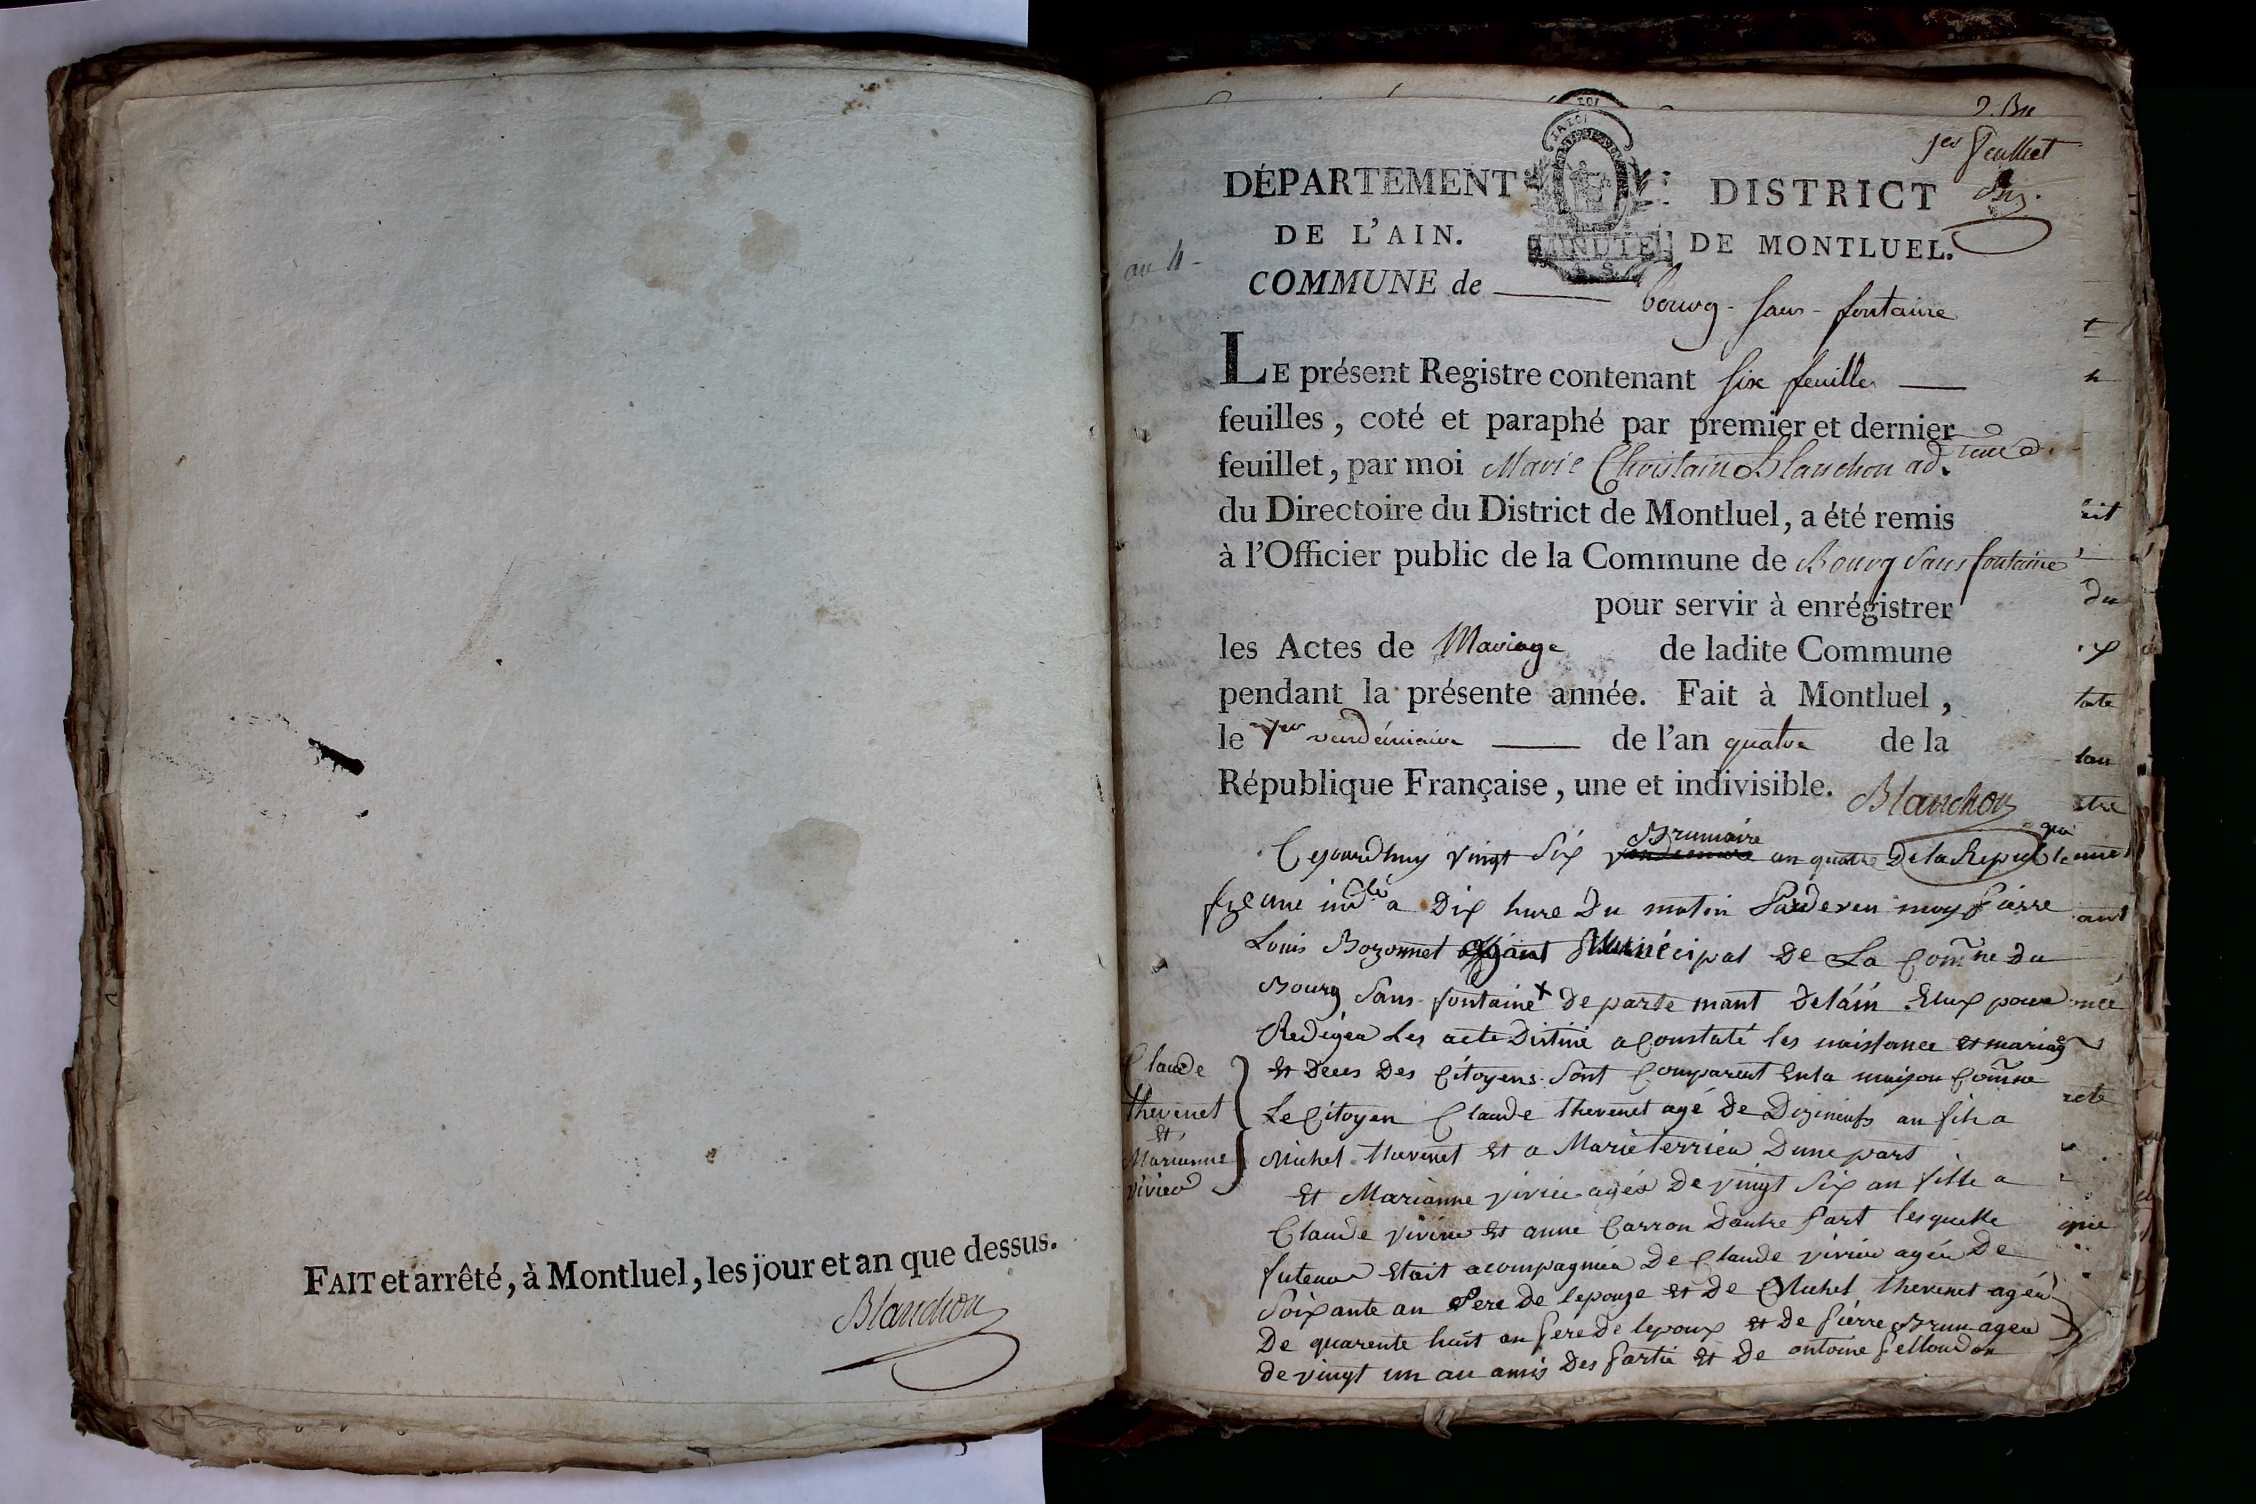 FAIT et arrêté, à Montluel, les jour et an que dessus.
Blanchon
1er feuillet
DÉPARTEMENT
DE L'AIN.
MINUTE
DISTRICT
DE MONTLUEL.
an 4
COMMUNE de bourg-sans-fontaine
LE présent Registre contenant six feuilles
feuilles, coté et paraphé par premier et dernier
feuillet, par moi Marie Christain Blanchon ad.teur
du Directoire du District de Montluel, a été remis
à l'Officier public de la Commune de Bourg Sans fontaine
pour servir à enrégistrer
les Actes de Mariage de ladite Commune
pendant la présente année. Fait à Montluel,
le 1er vendémiaire de l'an quatre de la
République Française, une et indivisible.
Blanchon
Brumaire
Cejourdhuy vingt Six an quatre De la Republique
fse une indble a Dix hure Du matin Pardeven moy Pierre
Louis Bozonnet agant Municipal De La Comne Du
Bourg Sans-fontaine x Departemant Delain. Elux pour
Redigéa Les acte Distiné a Constaté les naissance et mariag
et Deces Des Citoyens Sont Comparent En la maison Comne
Claude
thevenet
et
Marianne
vivier
Le Citoyen Claude thevenet agé De Dizineufs an fils a
Michel thevenet Et a Marie terrier Dune part
Et Marianne vivier agéa De vingt Six an fille a
Claude vivier Et anne Carron Dautre Part lesquelle
futeur Etait acompagniéa De Claude vivier agéa De
Soixante an Pere De lepouze et De Michel thevenet agéa
De quarente huit an Pere De lepoux et De Pierre Brun agéa
de vingt un an amis Des Partie Et De antoine